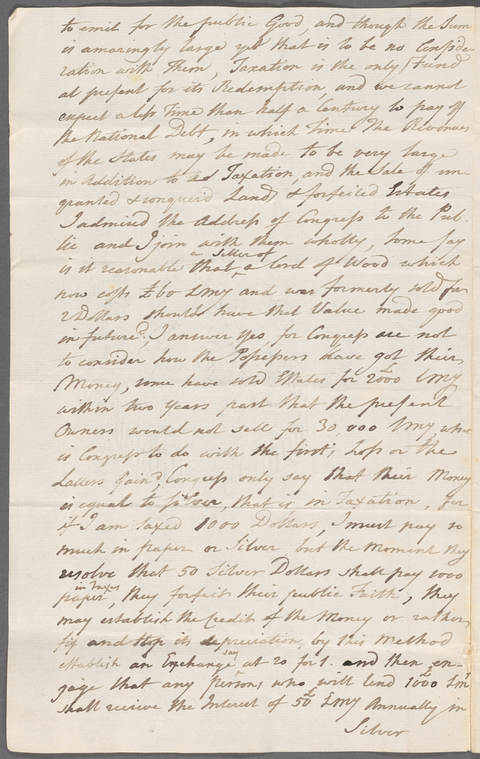 to emit for the public Good, and though the Sum
is amazingly large yet that is to be no Conside-
ration with them, Taxation is the only Fund
at present for its Redemption, and we cannot
expect a less Time than half a Century to pay off
the National Debt, in which Time The Revenues
of the States may be made to be very large
in addition to Taxation, and the Sale of un
granted & conquer'd Lands & forfeited Estates
I admired the Address of Congress to the Pub-
lic and I join with them wholly, Some say
is it reasonable that a Seller of a Cord of Wood which
now costs £60 LMy and was formerly sold for
2 Dollars should have that Value made good
in future? I answer Yes, for Congress are not
to consider how the Possessers have got their
Money, some have sold Estates for 2000£ LMy
within two Years past that the present
Owners would not sell for 30,000 LMy what
is Congress to do with the first's Loss or the
Latters Gain? Congress only say that their Money
is equal to Silver, that is in Taxation, for
if I am Taxed 1000 Dollars, I must pay so
much in paper or Silver but the Moment they
resolve that 50 Silver Dollars shall pay 1000
paper in Taxes, they forfeit their public Faith, they
may establish the Credit of the Money or rather
fix and stop its depreciation, by this Method
establish an Exchange say at 20 for 1. and then en-
gage that any Person, who will lend 1000£ LM
shall receive the Interest of 50£ LMy Annually in
Silver